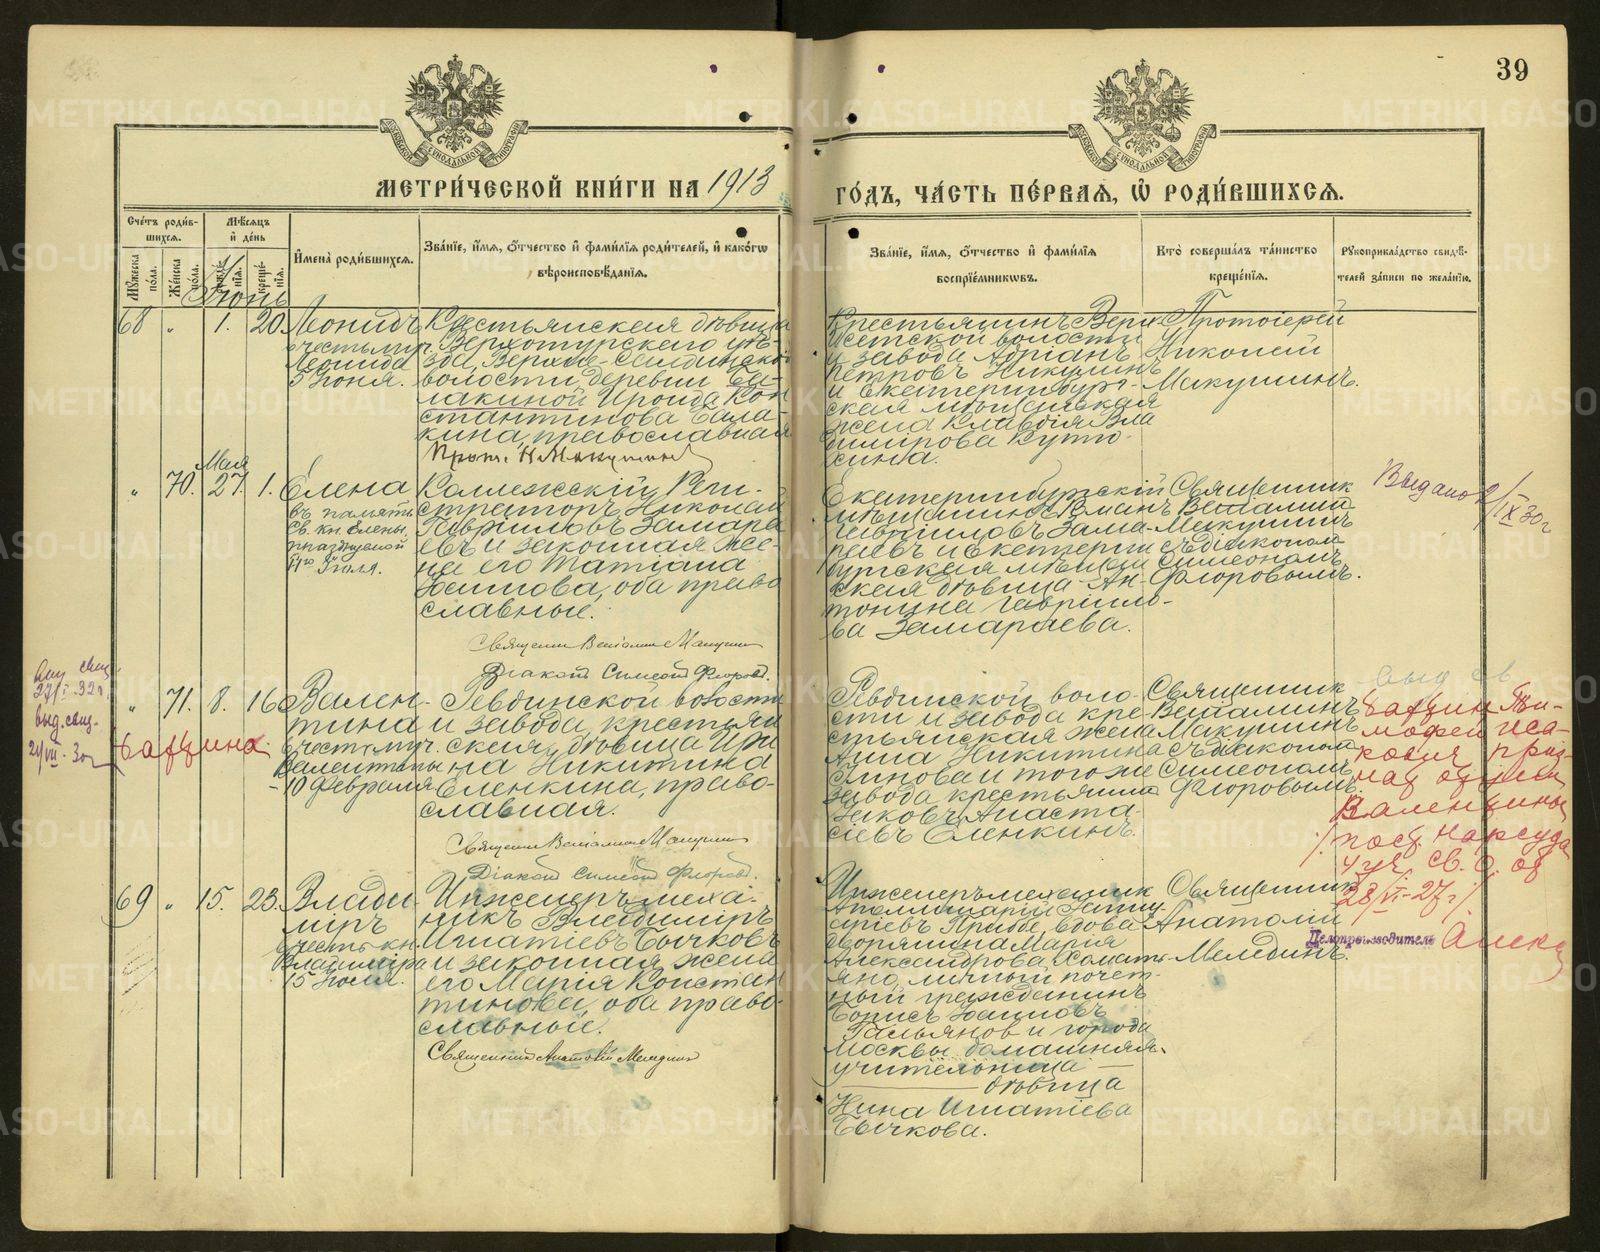 39
МОСКОВСКОЙ СѴНОДАЛЬНОЙ ТИПОГРАФІИ
МОСКОВСКОЙ СѴНОДАЛЬНОЙ ТИПОГРАФІИ
МЕТРИ́ЧЕСКОЙ КНИ́ГИ НА 1913
ГО́ДЪ, ЧА́СТЬ ПЕ́РВАЯ, Ѡ҆ РОДИ́ВШИХСЯ.
Сче́тъ роди́в-
шихся.
Мѣ́сяцъ
и҆ де́нь
Мꙋ́жеска по́ла.
Же́нска по́ла.
рожде́нїя.
креще́нїя.
Іюнь
И҆мена̀ роди́вшихся.
Зва́нїе, и҆́мя, ѻ҆́тчество и҆ фами́лїя роди́телей, и҆ како́гѡ
вѣроисповѣ́данїя.
Зва́нїе, и҆́мя, ѻ҆́тчество и҆ фами́лїя
воспрїе́мниковъ.
Кто̀ соверша́лъ та́инство
креще́нїя.
Рꙋкоприкла́дство свидѣ́-
телей за́писи по жела́нїю.
68 " 1. 20.
Леонидъ
въ честь муч.
Леонида
5 Іюня.
Крестьянская дѣвица
Верхотурскаго уѣз-
да, Верхне-Салдинской
волости, деревни Ба-
лакиной Ироида Кон
стантинова Бала-
кина, православная
Прот. Н Макушинъ
Крестьянинъ Верх-
Исетской волости
и завода Адріанъ
Петровъ Никулинъ
и Екатеринбург-
ская мѣщанская
жена Клавдія Вла
димірова Куто-
сина.
Протоіерей
Николай
Макушинъ.
Мая
" 70. 27. 1.
Елена
въ память
св. кн. Елены,
празднуемой
11го Іюля.
Коллежскій Реги-
страторъ Николай
Гавріиловъ Замара
евъ и законная же-
на его Татіана
Іоаннова, оба право
славные.
Священник Веніамин Макушин
Діакон Симеон Флоров.
Екатеринбургскій
мѣщанинъ Романъ
Гавріиловъ Зама-
раевъ и Екатерин
бургская мѣщан
ская дѣвица Ан-
тонина Гавріило-
ва Замараева.
Священник
Веніамин
Макушинъ
съ діакономъ
Симеономъ
Флоровымъ.
Выдано 2/IX 30 г
" 71. 8. 16
Вален-
тина
въ честь муч.
Валентины
10 февраля
Ревдинской волости
и завода, крестьян
ская дѣвица Ири
на Никитина
Еленкина, право-
славная.
Священник Веніамин Макушин
Діакон Симеон Флоров.
Ревдинской воло-
сти и завода кре-
стьянская жена
Анна Никитина
Блинова и того же
завода крестьянинъ
Іаковъ Анаста-
сіевъ Еленкинъ.
Священник
Веніаминъ
Макушинъ
съ діакономъ
Симеономъ
Флоровымъ.
выд. свид.
27/I 32 г
выд. свид.
29/VII - 30 г
Бабина
выд св
Тимофей Иса-
кович приз-
нан отцом
Валентины
/ пост. Нарсуда
4 уч. Св. О. от
28/VI-27 г /
Делопроизводитель
69 " 15. 23.
Влади-
міръ
въ честь кн.
Владиміра
15 Іюля.
Инженеръ меха-
никъ Владиміръ
Игнатіевъ Бычковъ
и законная жена
его Марія Констан
тинова, оба право-
славные.
Священникъ Анатолій Мелединъ
Инженеръ механик
Александрова
дворянина Марія
но, личный почет-
ный гражданинъ
Борисъ Іоанновъ
Гальяновъ и города
Москвы домашняя
учительница —
дѣвица
Нина Игнатіева
Бычкова.
Священник
Анатолій
Мелединъ.
METRIKI.GASO-URAL.RU